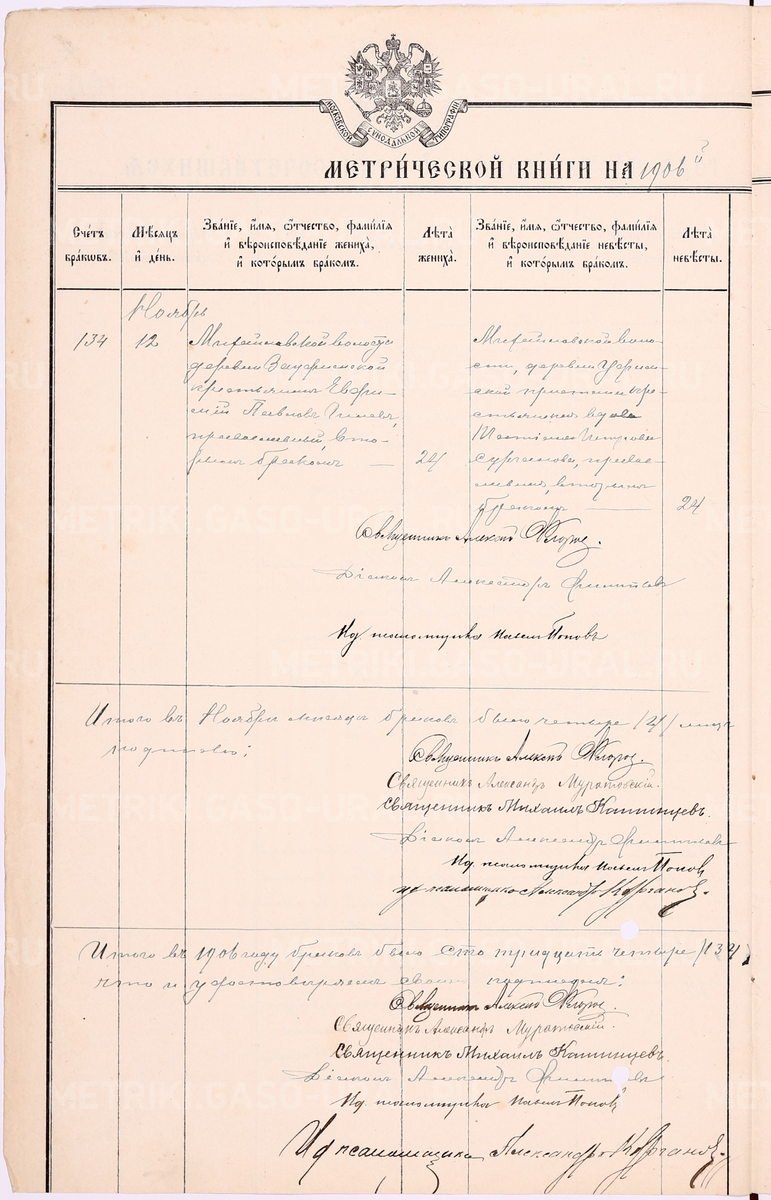 МОСКОВСКОЙ СѴНОДАЛЬНОЙ ТИПОГРАФІИ
МЕТРИ́ЧЕСКОЙ КНИ́ГИ НА 1906й
Сче́тъ бра́кѡвъ.
Мѣ́сяцъ и҆ де́нь.
Зва́нїе, и҆́мѧ, ѻ҆́тчество, фами́лїѧ и҆ вѣроисповѣ́данїе жениха̀, и҆ кото́рымъ бра́комъ.
Лѣ́та жениха̀.
Зва́нїе, и҆́мѧ, ѻ҆́тчество, фами́лїѧ и҆ вѣроисповѣ́данїе невѣ́сты, и҆ кото́рымъ бра́комъ.
Лѣ́та невѣ́сты.
Ноябрь
134
12
волости
деревни
крестьянинъ Евфи-
мій Павловъ
православный, вто-
рымъ бракомъ
24
воло-
сти, деревни Уфим-
ской кре-
стьянская вдова
Петрова
правос-
лавная, вторымъ
бракомъ
24
Священникъ Алекс. Флоров.
Діаконъ Александръ Филиповъ
И.д. псаломщика Павелъ Поповъ
Итого въ Ноябрѣ мѣсяцѣ браковъ было четыре /4/
Священникъ Алекс. Флоров.
Священникъ Александръ Муратовскій.
Священникъ Михаилъ Кашинцевъ.
Діаконъ Александръ Филиповъ
И.д. псаломщика Павелъ Поповъ
И.д. псаломщика Александръ Курганов.
Итого въ 1906 году браковъ было сто тридцать четыре /134/,
что и удостовѣряемъ своимъ подписомъ:
Священникъ Алекс. Флоров.
Священникъ Александръ Муратовскій.
Священникъ Михаилъ Кашинцевъ.
Діаконъ Александръ Филиповъ
И.д. псаломщика Павелъ Поповъ
И.д. псаломщика Александръ Курганов.
METRIKI.GASO-URAL.RU